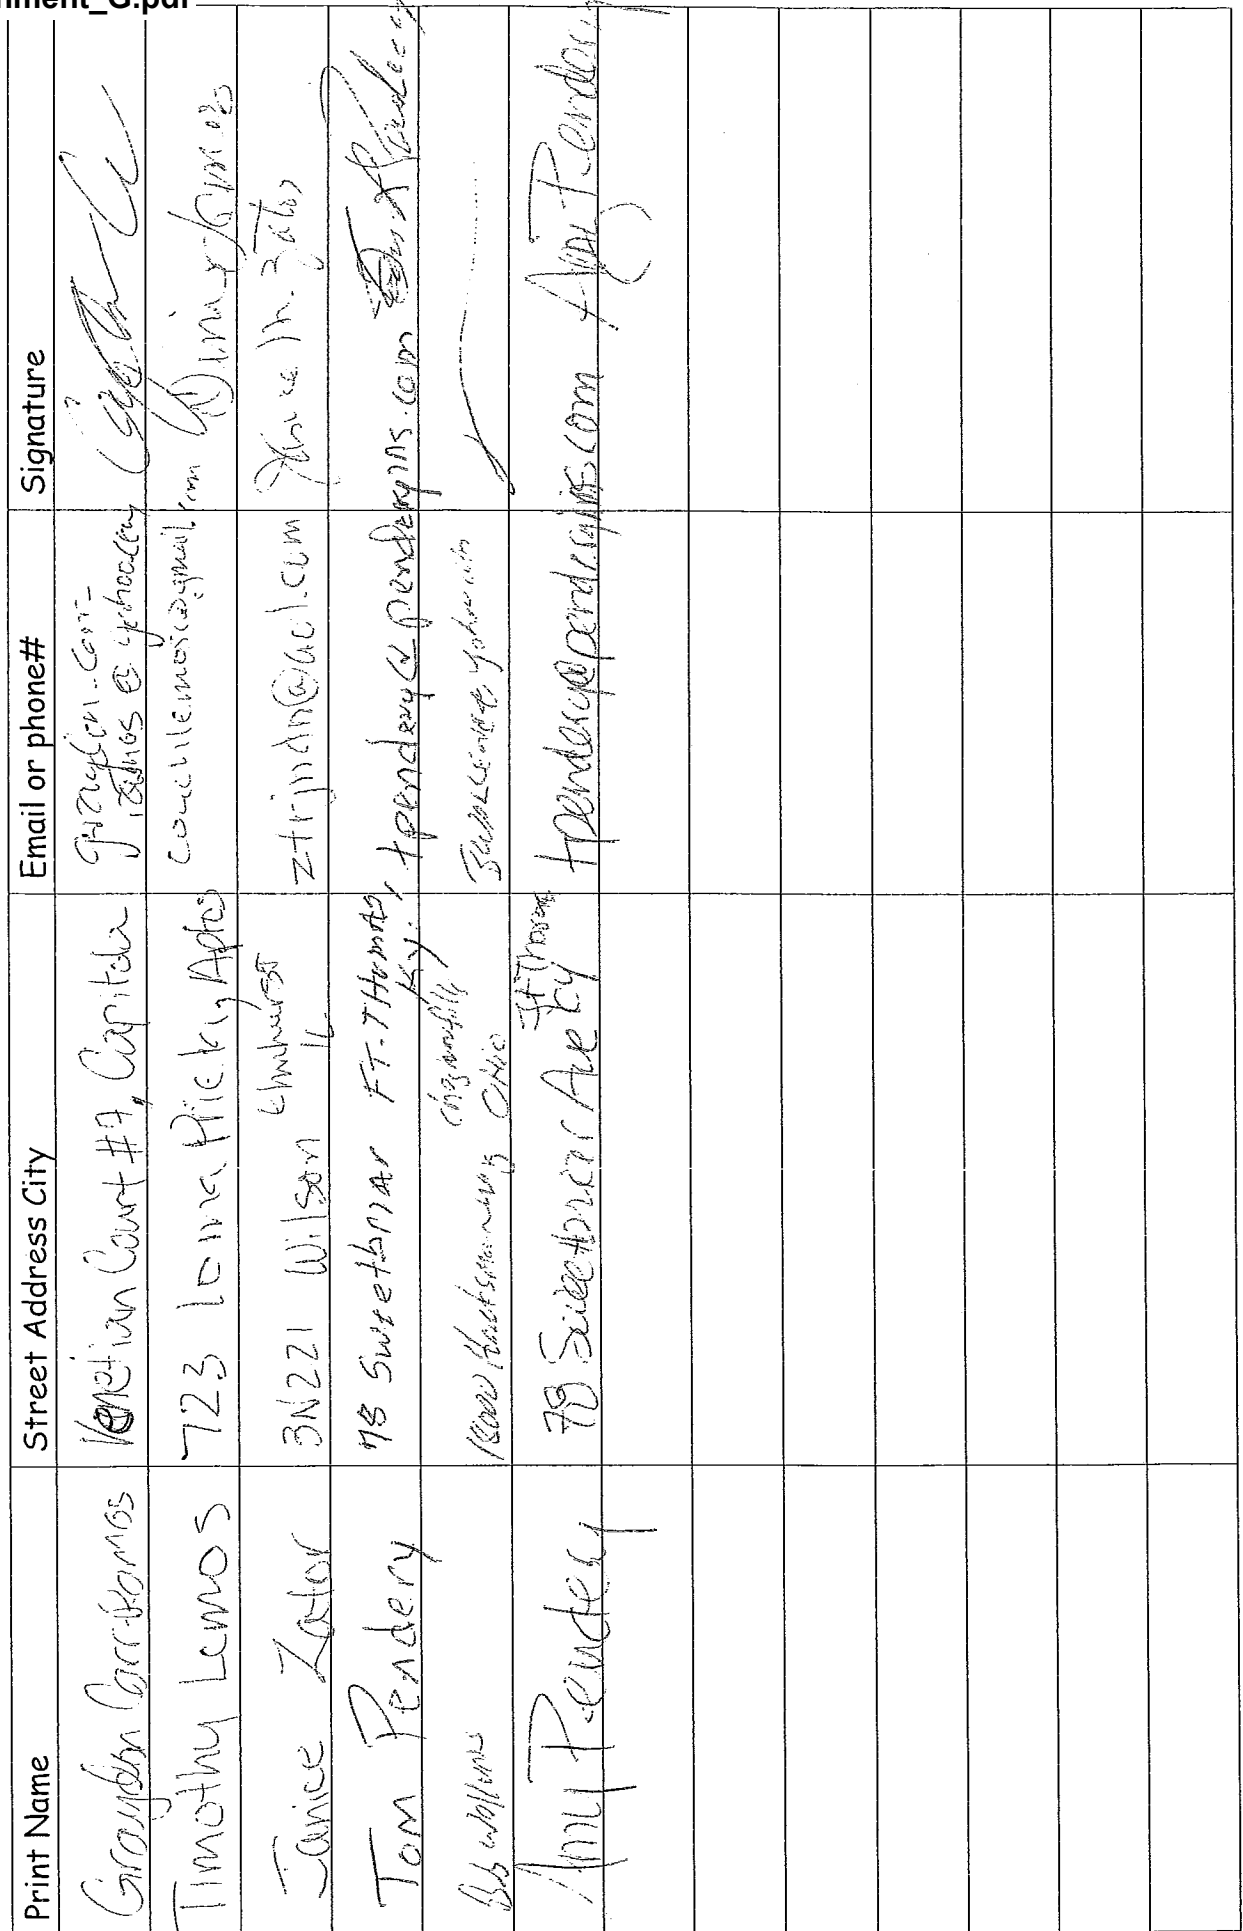 nment_G.pdf
Print Name Street Address City Email or phone# Signature
Graydon Carr-Ramos Venetian Court #7, Capitola
Timothy Lemos 723 Loma Prieta, Aptos coachlemos@gmail.com
Janice Zator 3N221 Wilson Elmhurst IL ztrjnan@aol.com Janice M. Zator
Tom Pendery 78 Sweetbriar FT. THOMAS, Ky. tpendery@penderyins.com
Bob Ohio
Amy Pendery 78 Sweetbriar Ave Ft Thomas Ky tpendery@penderyins.com Amy Pendery